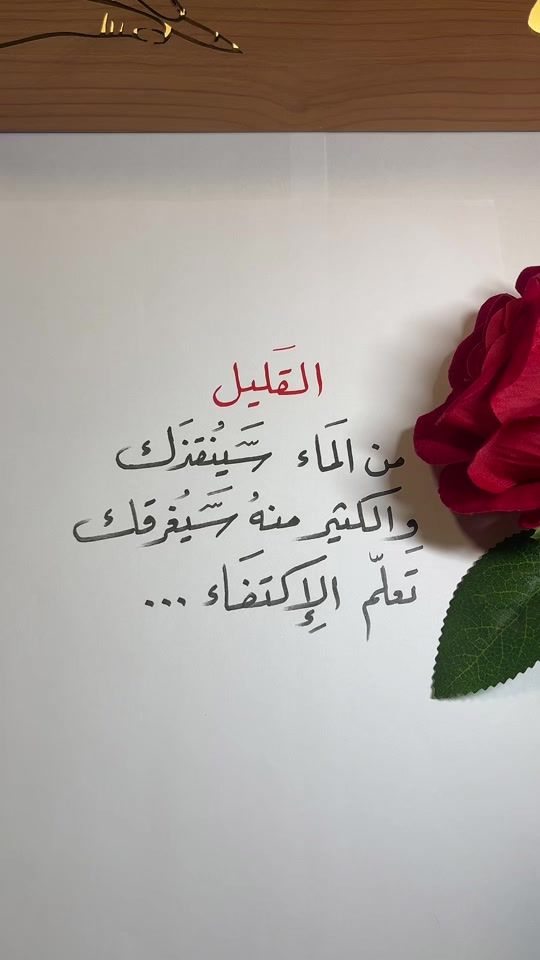 القَليل
من المَاء سَيُنقذَك
وَالكثير منهُ سَيُغرقك
تَعلّم الإِكتفَاء ...